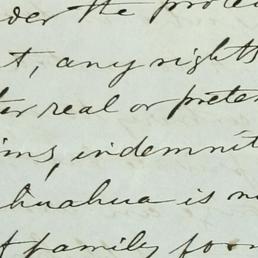 der the prote
t, any rights
ter real or preten
ims, indemnit
huahua is n
f family for